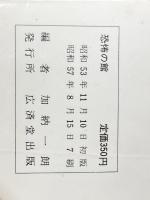 恐怖の館
定価350円
昭和53年11月10日初版
昭和57年8月15日7刷
編者 加納一朗
発行所 広済堂出版